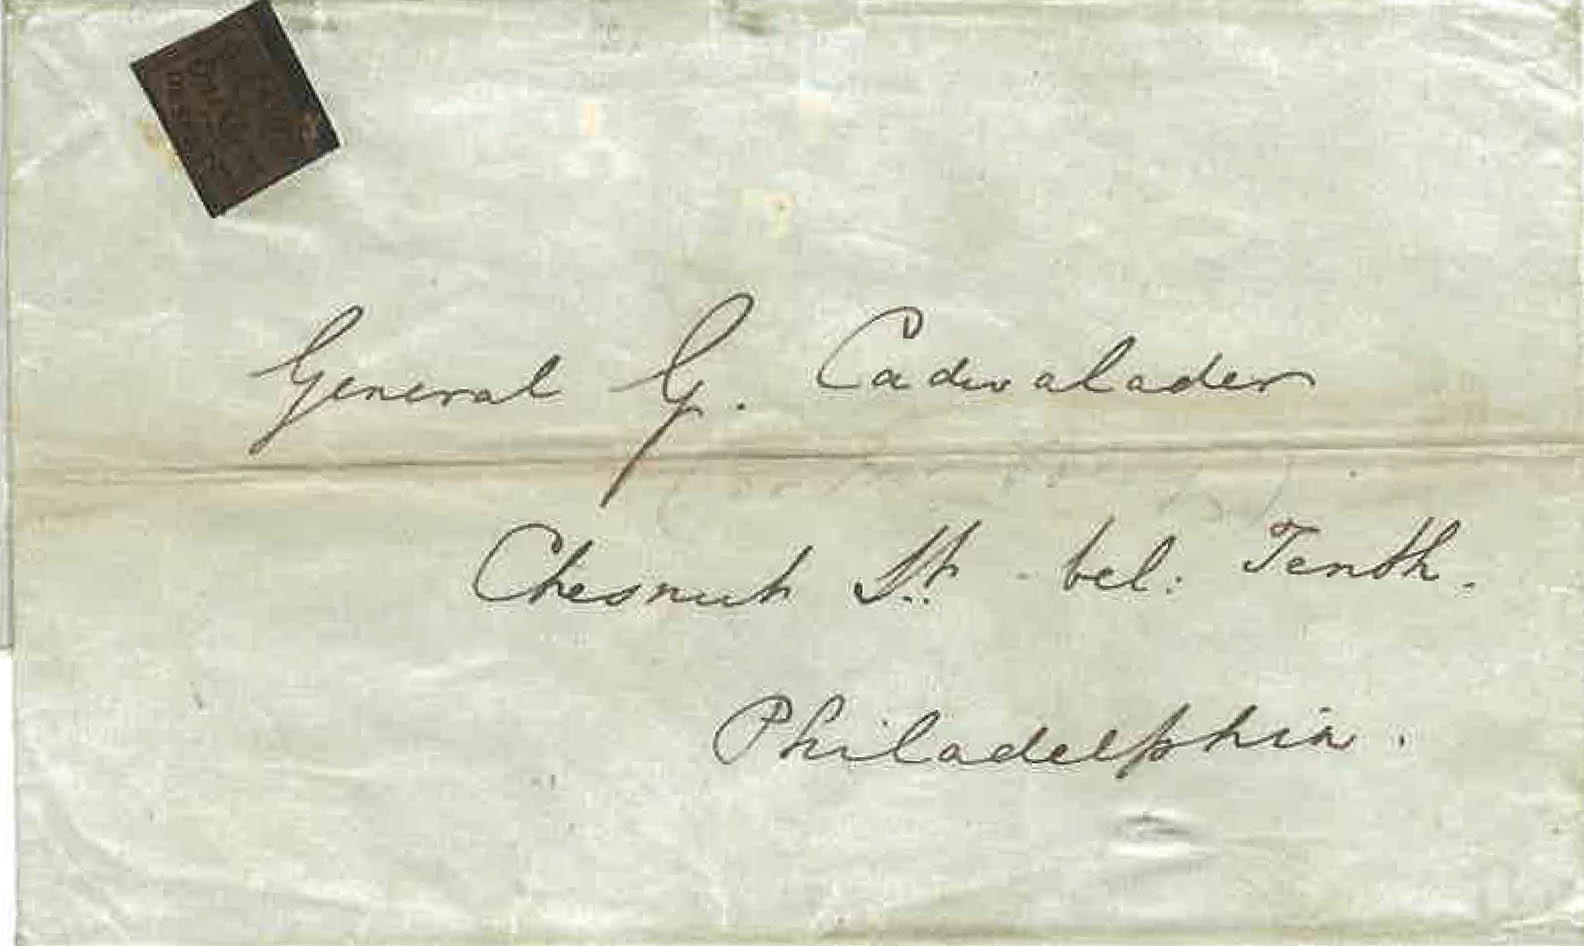 General G. Cadwalader
Chesnut St. bel: Tenth.
Philadelphia.